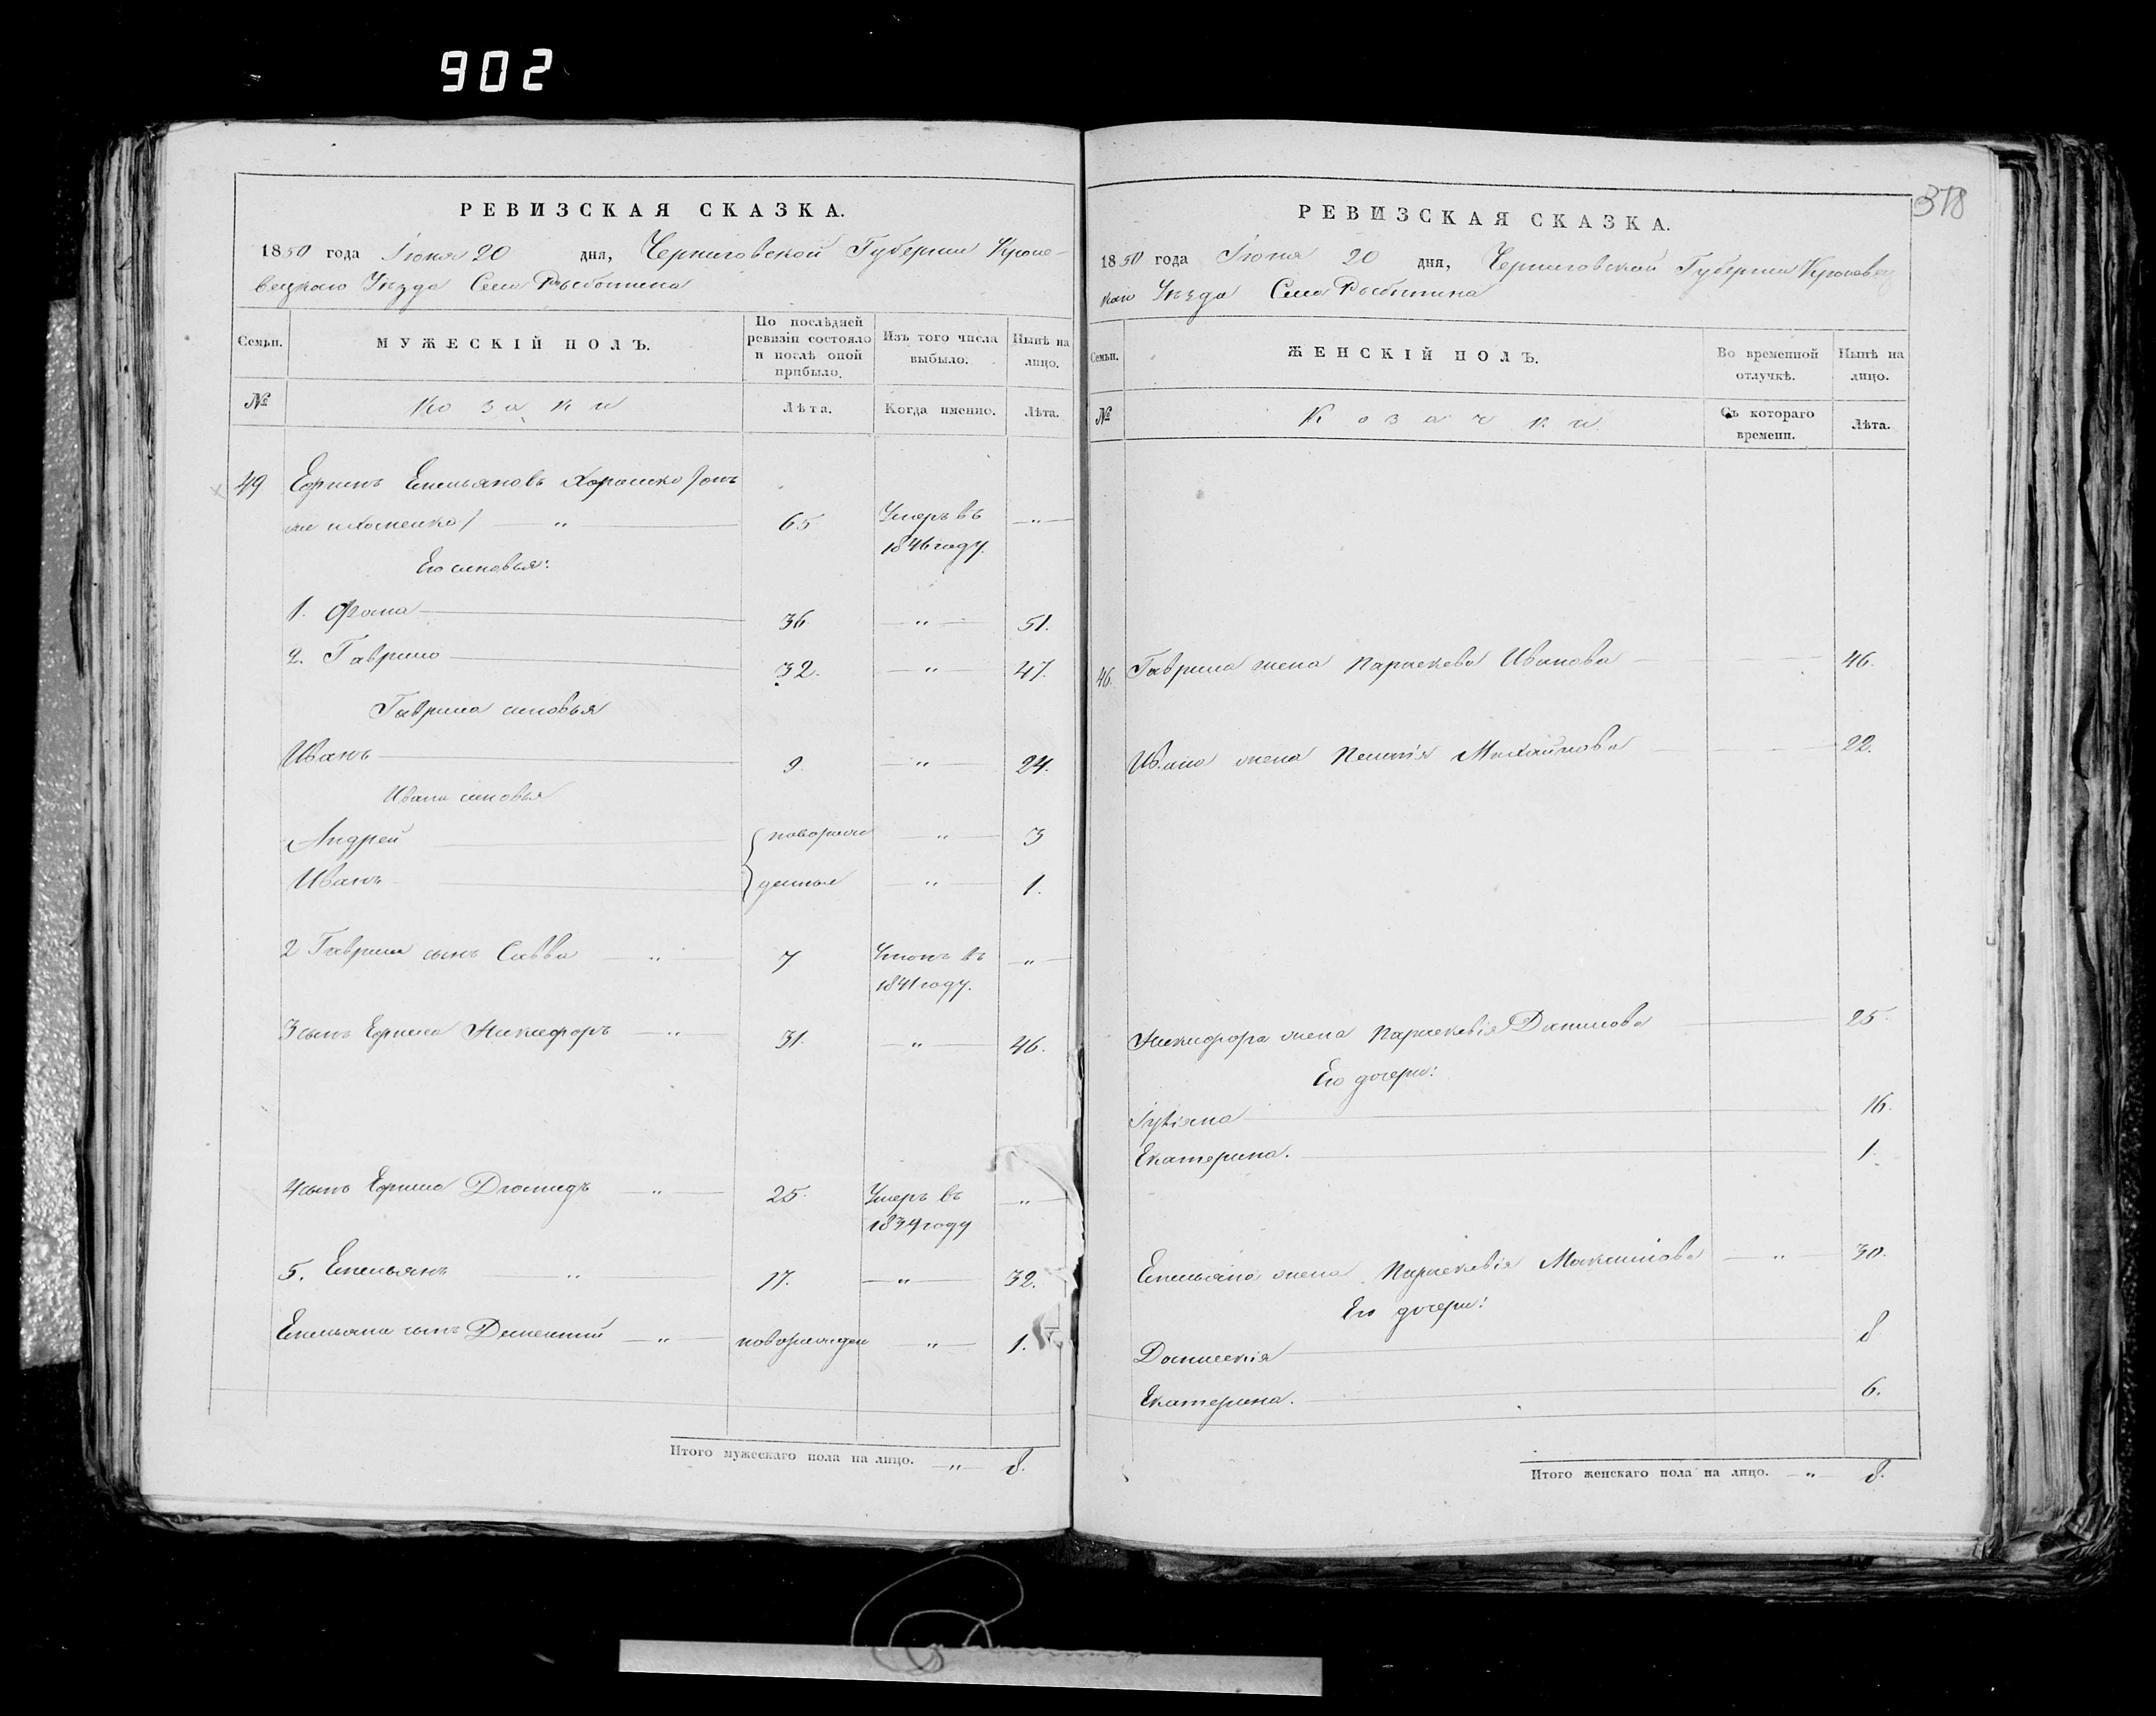 902
РЕВИЗСКАЯ СКАЗКА.
1850 года Іюня 20 дня, Черниговской Губерніи Кроле-
вецкаго Уѣзда Села Рыботина
Семьи. МУЖЕСКІЙ ПОЛЪ. По послѣдней ревизіи состояло и послѣ оной прибыло. Изъ того числа выбыло. Нынѣ на лицо.
№ Козаки Лѣта. Когда именно. Лѣта.
49 Ефимъ Емельяновъ Хорошко /онъ
же и Хоменко/ „ 65 Умеръ въ 1846 году. „
Его сыновья:
1. Фома 36 „ 51.
2. Гаврило 32. „ 47.
Гаврила сыновья
Иванъ 9. „ 24.
Ивана сыновья
Андрей новорож „ 3
Иванъ денные „ 1.
2 Гаврила сынъ Савва „ 7 въ 1841 году. „
3 сынъ Ефима Никифоръ „ 31. „ 46.
4 сынъ Ефима Діомидъ „ 25. Умеръ въ 1834 году „
5. Емельянъ „ 17. „ 32.
Емельяна сынъ Дементій „ новорожден „ 1.
Итого мужескаго пола на лицо. „ 8.
378
РЕВИЗСКАЯ СКАЗКА.
1850 года Іюня 20 дня, Черниговской Губерніи Кролевец
каго Уѣзда Села Рыботина
Семьи. ЖЕНСКІЙ ПОЛЪ. Во временной отлучкѣ. Нынѣ на лицо.
№ Козачки Съ котораго времени. Лѣта.
46. Гаврила жена Параскева Иванова 46.
Ивана жена Михайлова 22.
Никифора жена Параскевія Данилова 25.
Его дочери:
16.
Екатерина. 1.
Емельяна жена Параскевія Максимова „ 30.
Его дочери:
Домникія 8
Екатерина. 6.
Итого женскаго пола на лицо. „ 8.